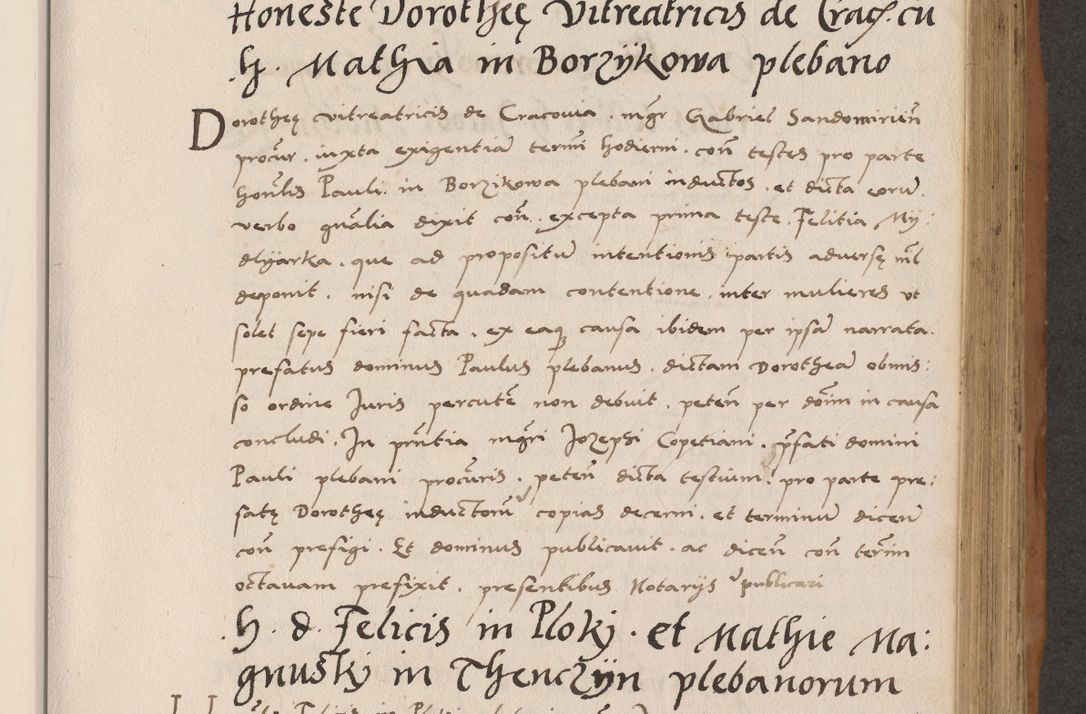 Honeste Dorotheę Vitreatricis de Crac. cū
.h. Mathia in Borzÿkowa plebano
Dorotheę vitreatricis de Cracovia . mgr̄ Gabriel Sandomirień
procur̄ . iuxta exigentiā termi̅ hodierni . con̄ testes pro parte
hon̄lis Pauli . in Borzikowa plebani inductos . et dicta eorū .
verbo gn̄alia dixit con̄ . excepta prima teste . Felitia Mÿ:
dlÿarka . que ad propositū intentionis partis adversę nil̄
deponit . nisi de quadam contentione . inter mulieres ut
solet sepe fieri facta . ex eaq causa ibidem per ipsā narrata .
prefatus dominus Paulus plebanus . dictam Dorotheā obmis:
so ordine Juris percutē non debuit . peten̄ per dōim in causa
concludi . In prn̄tia mgr̄i Jozephi Copetiani . p̄fati domini
Pauli plebani procur̄is . peten̄ dicta testium . pro parte pre:
fatę Dorotheę inductorū copias decerni . et terminū dicen̄
con̄ prefigi . Et dominus publicavit . ac dicen̄ con̄ term̄
octavam prefixit . presentibus Notarijs publicari
.h. d. Felicis in Ploki . et Mathie Ma:
gnuskj in Thenczÿn plebanorum